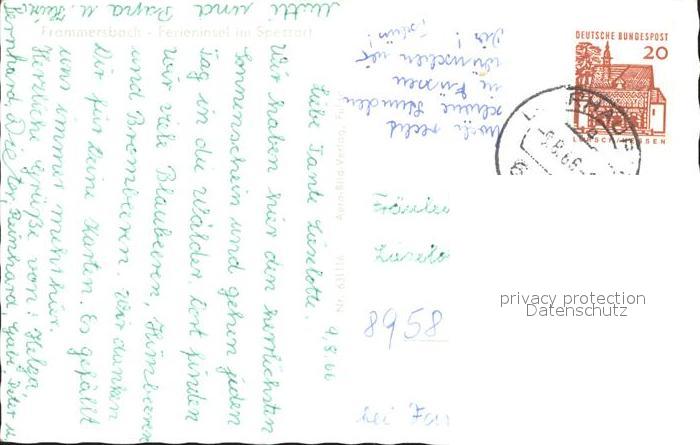 Frammersbach - Ferieninsel im Spessart
4.8.66
Liebe Tante Liselotte.
Wir haben hier den herrlichsten
Sonnenschein und gehen jeden
Tag in die Wälder. Dort finden
wir viele Blaubeeren, Himbeeren
und Brombeeren. Wir danken
Dir für Deine Karten. Es gefällt
uns immer mehr hier.
Herzliche Grüße von: Helga
Bernhard Dieter, Burkhard
Mutti und Papa u.
Noch recht
schöne Stunden
in Füssen
wünschen wir
Dir!
Nr. 63111A Apro-Bild-Verlag,
DEUTSCHE BUNDESPOST
20
LORSCH/HESSEN
-9.8.66
Fräulein
Liselo
8958
bei Fa
privacy protection
Datenschutz